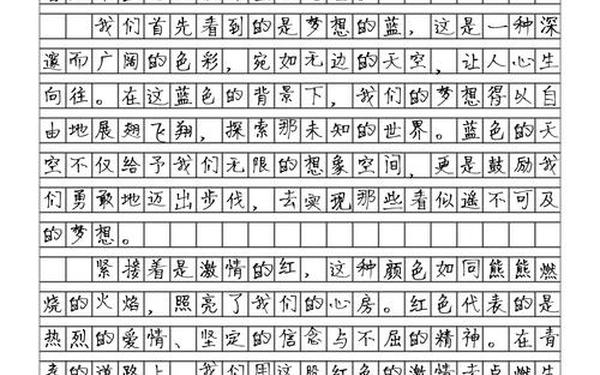 我们首先看到的是梦想的蓝，这是一种深
邃而广阔的色彩，宛如无边的天空，让人心生
向往。在这蓝色的背景下，我们的梦想得以自
由地展翅飞翔，探索那未知的世界。蓝色的天
空不仅给予我们无限的想象空间，更是鼓励我
们勇敢地迈出步伐，去实现那些看似遥不可及
的梦想。
紧接着是激情的红，这种颜色如同熊熊燃
烧的火焰，照亮了我们的心房。红色代表的是
热烈的爱情、坚定的信念与不屈的精神。在青
春的道路上，我们用这股红色的激情去点燃生